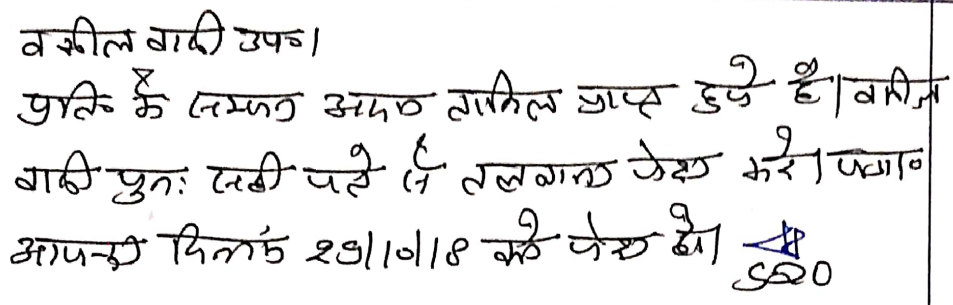 वकील वादी उप०।
प्रति० के सम्मन अदम तामिल प्राप्त हुये है। वकील
वादी पुनः सही पते से तलवाना पेश करे। पत्रा०
आयन्दा दिनांक 29/10/18 को पेश हो।
SDO